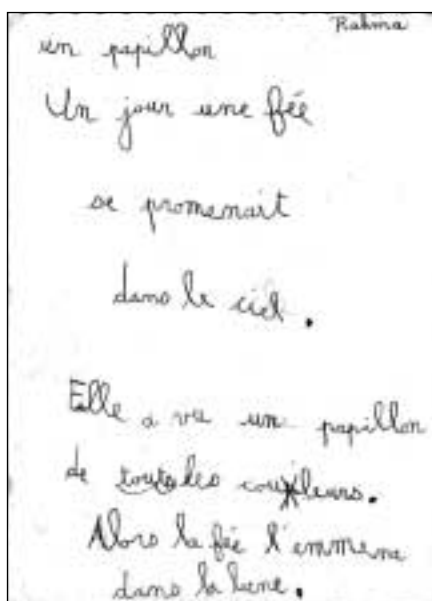 Rahma
un papillon
Un jour une fée
se promenait
dans le ciel.
Elle a vu un papillon
de toutes les couleurs.
Alors la fée l'emmene
dans la lune.